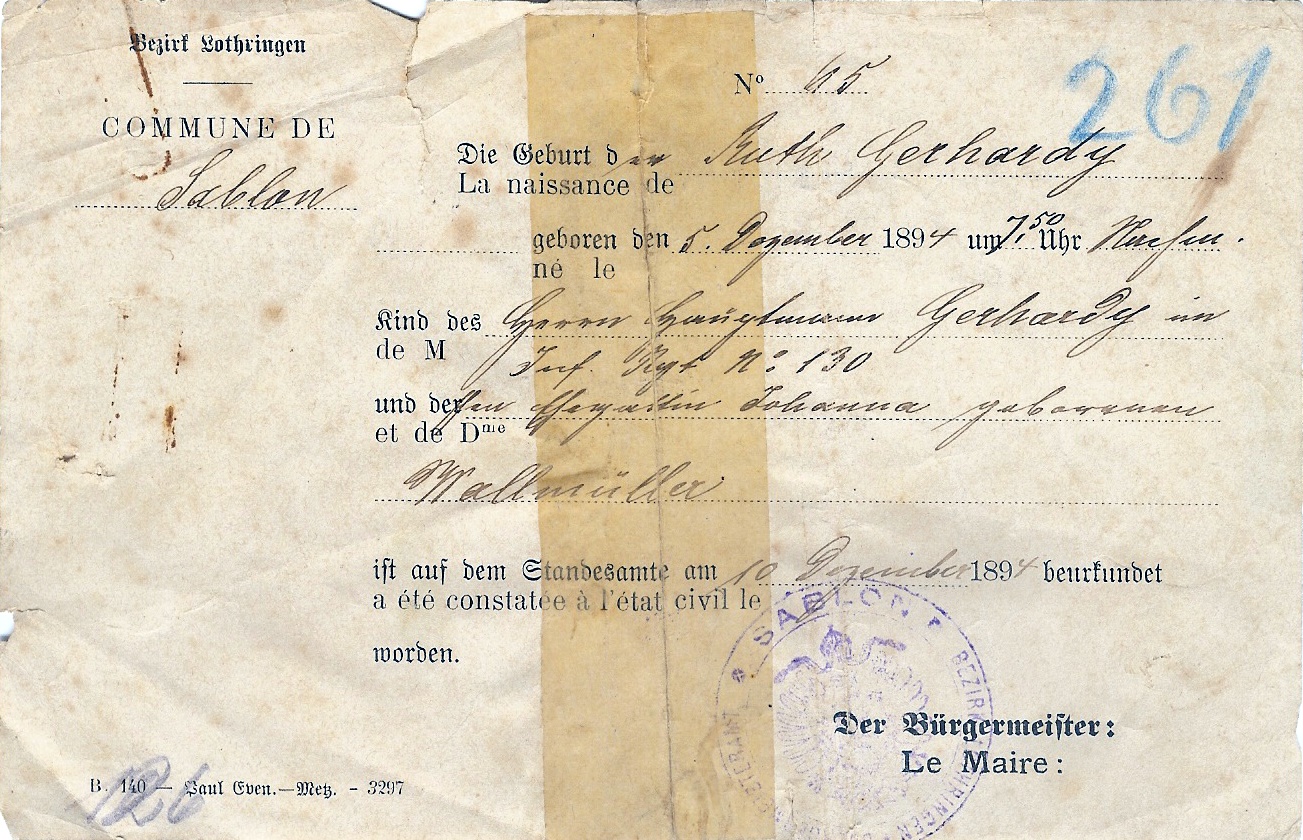 Bezirk Lothringen
COMMUNE DE
Sablon
Nº 65
261
Die Geburt der Ruth Gerhardy
La naissance de
geboren den 5. Dezember 1894 um 7,50 Uhr Nachm.
né le
Kind des Herrn Hauptmann Gerhardy im
de M
Inf. Rgt Nº 130
und der Ehegattin Johanna geborenen
et de Dme
Wallmüller
ist auf dem Standesamte am 10 Dezember 1894 beurkundet
a été constatée à l'état civil le
worden.
SABLON
BEZIRK LOTHRINGEN
Der Bürgermeister:
Le Maire:
B. 140 — Paul Even.—Metz. - 3297
126